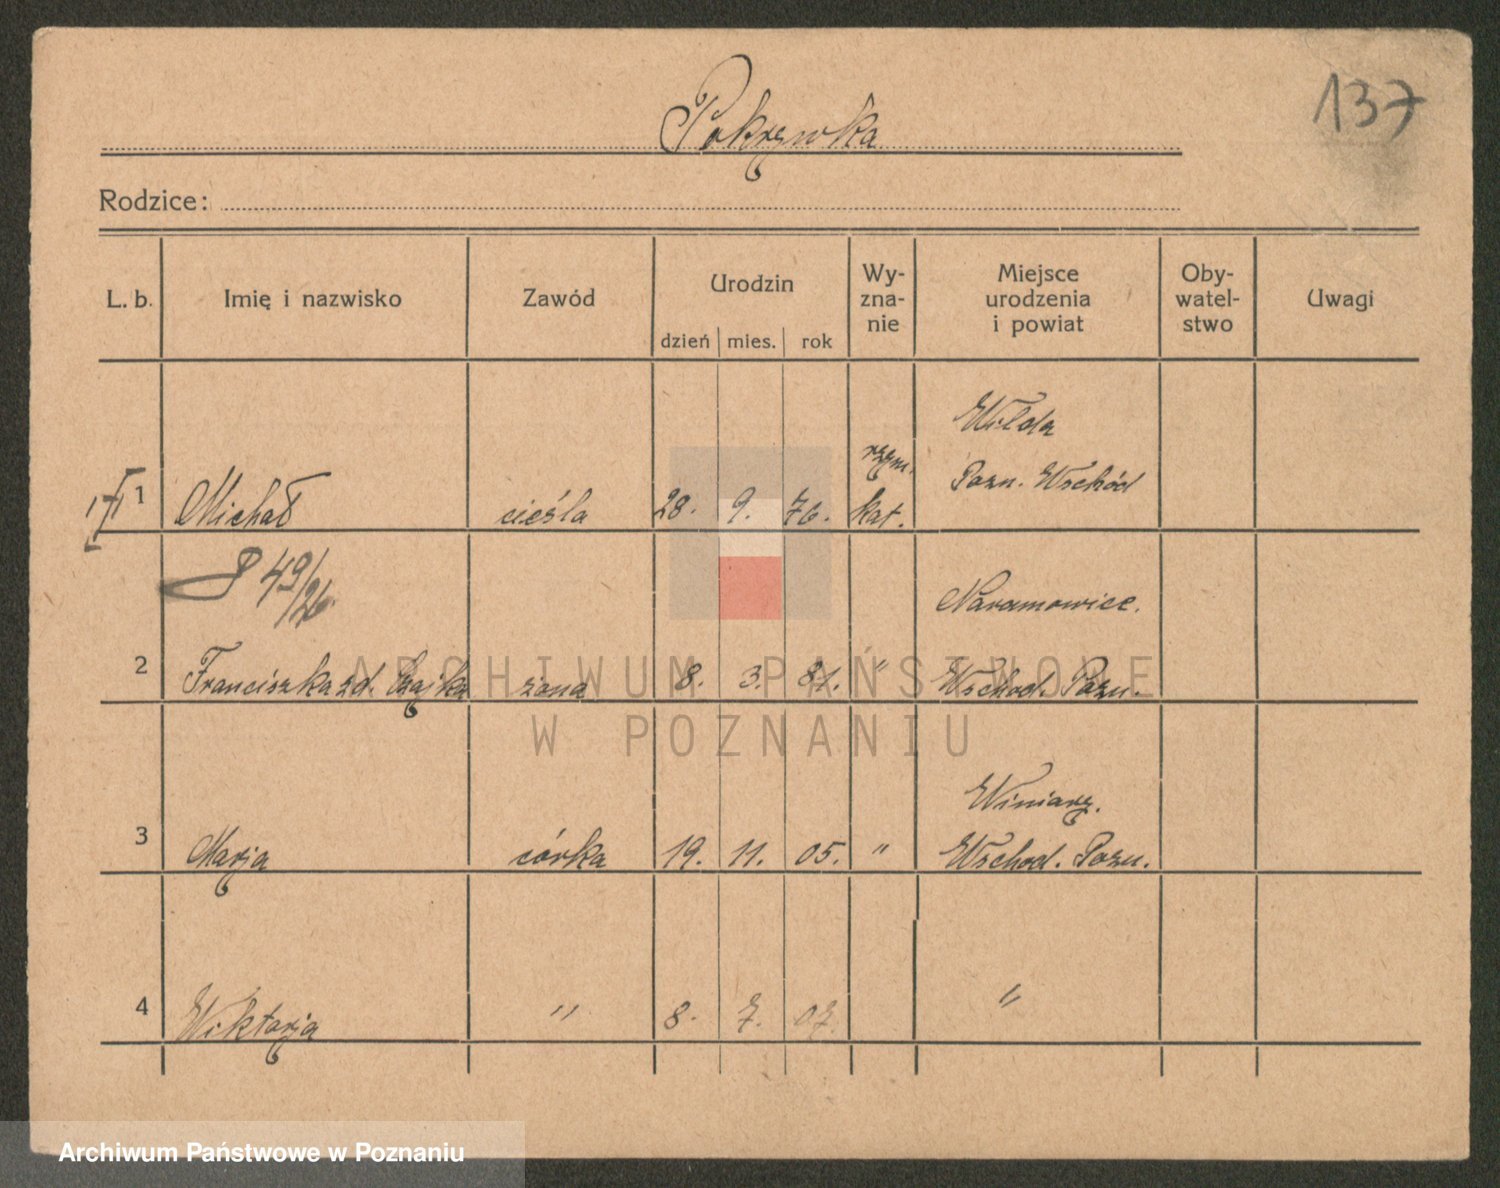 137
Pokrzywka
Rodzice:
L. b.
Imię i nazwisko
Zawód
Urodzin
dzień
mies.
rok
Wy-
zna-
nie
Miejsce
urodzenia
i powiat
Oby-
watel-
stwo
Uwagi
1
Michał
cieśla
28.
9.
76.
rzym.
kat.
Wilda
Pozn. Wschód
49/26
2
Franciszka zd. Czajka
żona
8.
3.
81.
"
Naramowice.
Wschod. Pozn.
3
Marja
córka
19.
11.
05.
"
Winiary.
Wschod. Pozn.
4
Wiktorja
"
8.
7.
07.
"
ARCHIWUM PAŃSTWOWE
W POZNANIU
Archiwum Państwowe w Poznaniu